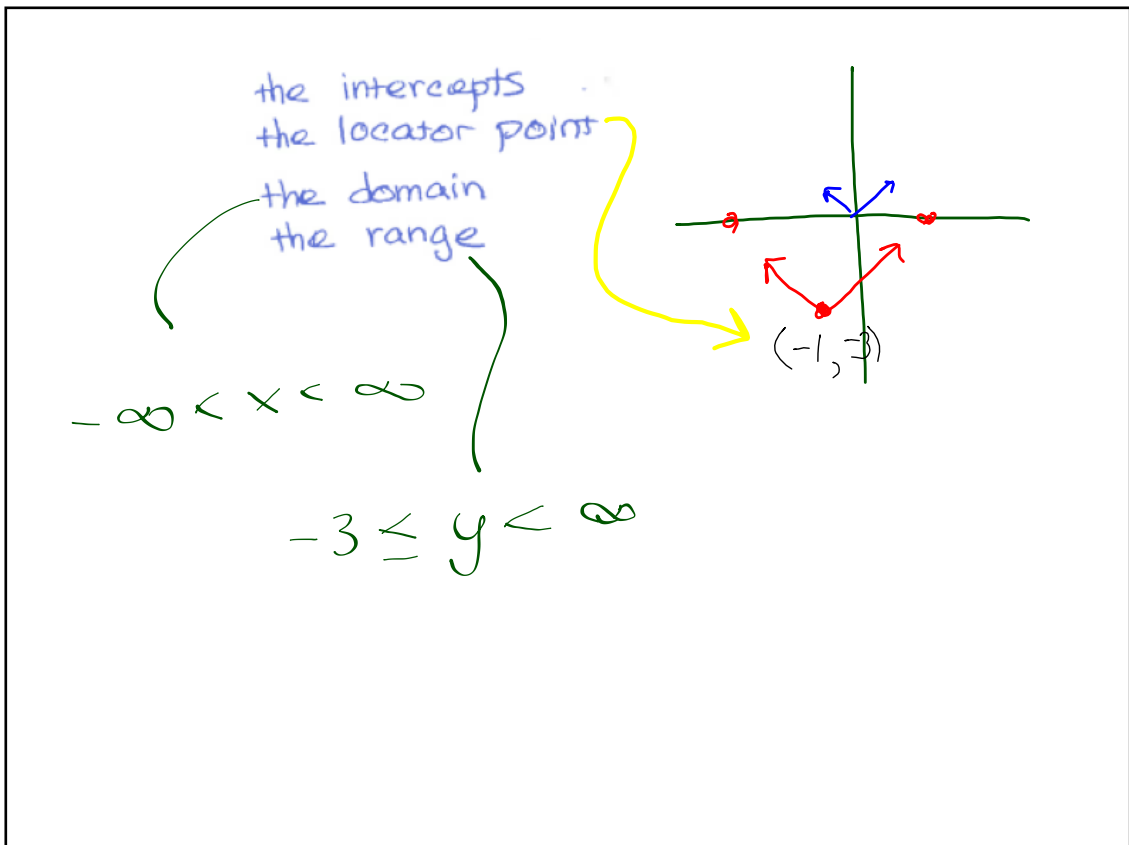 the intercepts
the locator point
the domain
the range
(-1, -3)
-∞ < x < ∞
-3 ≤ y < ∞